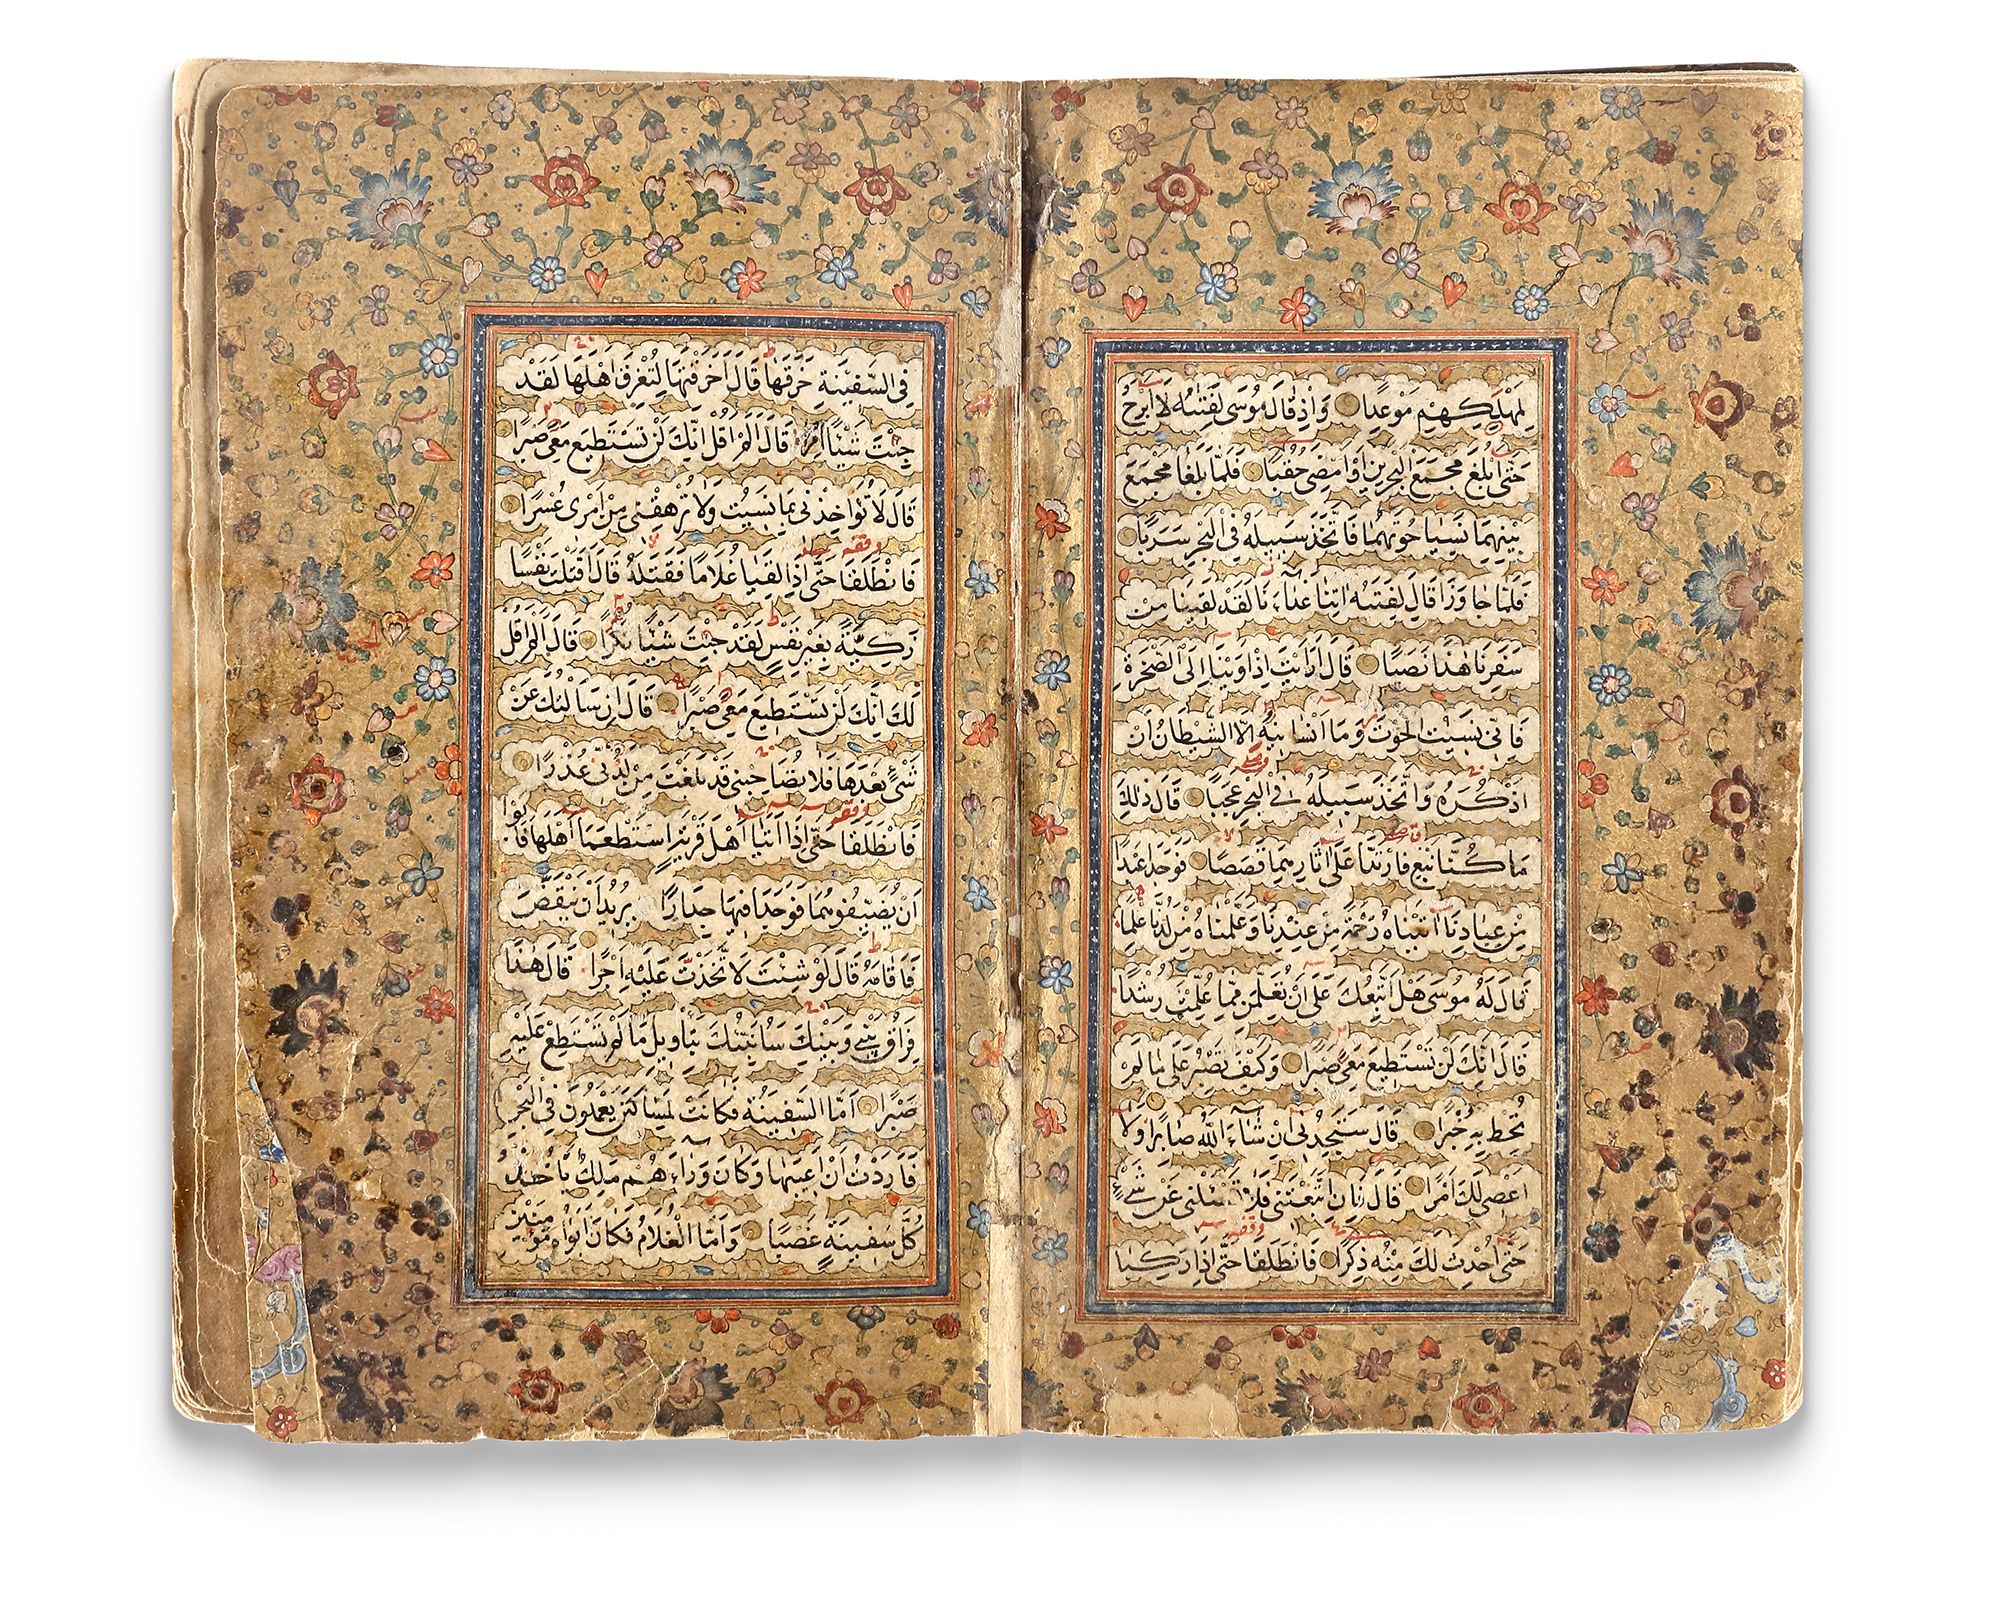 لِمَهْلِكِهِمْ مَوْعِدًا وَاِذْ قَالَ مُوسٰى لِفَتٰىهُ لَا اَبْرَحُ
حَتّٰى اَبْلُغَ مَجْمَعَ الْبَحْرَيْنِ اَوْ اَمْضِىَ حُقُبًا فَلَمَّا بَلَغَا مَجْمَعَ
بَيْنِهِمَا نَسِيَا حُوتَهُمَا فَاتَّخَذَ سَبِيلَهُ فِى الْبَحْرِ سَرَبًا
فَلَمَّا جَاوَزَا قَالَ لِفَتٰىهُ اٰتِنَا غَدَاءَنَا لَقَدْ لَقِينَا مِنْ
سَفَرِنَا هٰذَا نَصَبًا قَالَ اَرَاَيْتَ اِذْ اَوَيْنَا اِلَى الصَّخْرَةِ
فَاِنِّى نَسِيتُ الْحُوتَ وَمَا اَنْسَانِيهُ اِلَّا الشَّيْطَانُ اَنْ
اَذْكُرَهُ وَاتَّخَذَ سَبِيلَهُ فِى الْبَحْرِ عَجَبًا قَالَ ذٰلِكَ
مَا كُنَّا نَبْغِ فَارْتَدَّا عَلٰى اٰثَارِهِمَا قَصَصًا فَوَجَدَا عَبْدًا
مِنْ عِبَادِنَا اٰتَيْنَاهُ رَحْمَةً مِنْ عِنْدِنَا وَعَلَّمْنَاهُ مِنْ لَدُنَّا عِلْمًا
قَالَ لَهُ مُوسٰى هَلْ اَتَّبِعُكَ عَلٰى اَنْ تُعَلِّمَنِ مِمَّا عُلِّمْتَ رُشْدًا
قَالَ اِنَّكَ لَنْ تَسْتَطِيعَ مَعِىَ صَبْرًا وَكَيْفَ تَصْبِرُ عَلٰى مَا لَمْ
تُحِطْ بِهِ خُبْرًا قَالَ سَتَجِدُنِى اِنْ شَاءَ اللّٰهُ صَابِرًا وَلَا
اَعْصِى لَكَ اَمْرًا قَالَ فَاِنِ اتَّبَعْتَنِى فَلَا تَسْئَلْنِى عَنْ شَىْءٍ
حَتّٰى اُحْدِثَ لَكَ مِنْهُ ذِكْرًا فَانْطَلَقَا حَتّٰى اِذَا رَكِبَا
فِى السَّفِينَةِ خَرَقَهَا قَالَ اَخَرَقْتَهَا لِتُغْرِقَ اَهْلَهَا لَقَدْ
جِئْتَ شَيْئًا اِمْرًا قَالَ اَلَمْ اَقُلْ اِنَّكَ لَنْ تَسْتَطِيعَ مَعِىَ صَبْرًا
قَالَ لَا تُؤَاخِذْنِى بِمَا نَسِيتُ وَلَا تُرْهِقْنِى مِنْ اَمْرِى عُسْرًا
فَانْطَلَقَا حَتّٰى اِذَا لَقِيَا غُلَامًا فَقَتَلَهُ قَالَ اَقَتَلْتَ نَفْسًا
زَكِيَّةً بِغَيْرِ نَفْسٍ لَقَدْ جِئْتَ شَيْئًا نُكْرًا قَالَ اَلَمْ اَقُلْ
لَكَ اِنَّكَ لَنْ تَسْتَطِيعَ مَعِىَ صَبْرًا قَالَ اِنْ سَاَلْتُكَ عَنْ
شَىْءٍ بَعْدَهَا فَلَا تُصَاحِبْنِى قَدْ بَلَغْتَ مِنْ لَدُنِّى عُذْرًا
فَانْطَلَقَا حَتّٰى اِذَا اَتَيَا اَهْلَ قَرْيَةٍ اسْتَطْعَمَا اَهْلَهَا فَاَبَوْا
اَنْ يُضَيِّفُوهُمَا فَوَجَدَا فِيهَا جِدَارًا يُرِيدُ اَنْ يَنْقَضَّ
فَاَقَامَهُ قَالَ لَوْ شِئْتَ لَاتَّخَذْتَ عَلَيْهِ اَجْرًا قَالَ هٰذَا
فِرَاقُ بَيْنِى وَبَيْنِكَ سَاُنَبِّئُكَ بِتَاْوِيلِ مَا لَمْ تَسْتَطِعْ عَلَيْهِ
صَبْرًا اَمَّا السَّفِينَةُ فَكَانَتْ لِمَسَاكِينَ يَعْمَلُونَ فِى الْبَحْرِ
فَاَرَدْتُ اَنْ اَعِيبَهَا وَكَانَ وَرَاءَهُمْ مَلِكٌ يَاْخُذُ
كُلَّ سَفِينَةٍ غَصْبًا وَاَمَّا الْغُلَامُ فَكَانَ اَبَوَاهُ مُؤْمِنَيْنِ